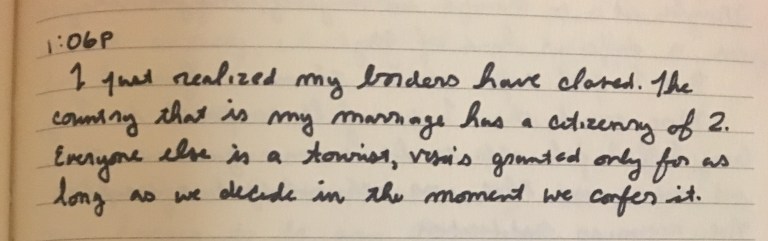 1:06P
I just realized my borders have closed. The
country that is my marriage has a citizenry of 2.
Everyone else is a tourist, visa's granted only for as
long as we decide in the moment we confer it.